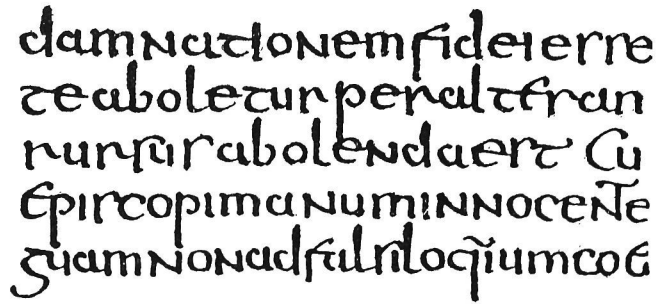 damnationem fidei esse
te aboletur per alteran
rursus abolenda est Cu
Episcopi manum innocente
guam non ad falsiloq̄ium coe